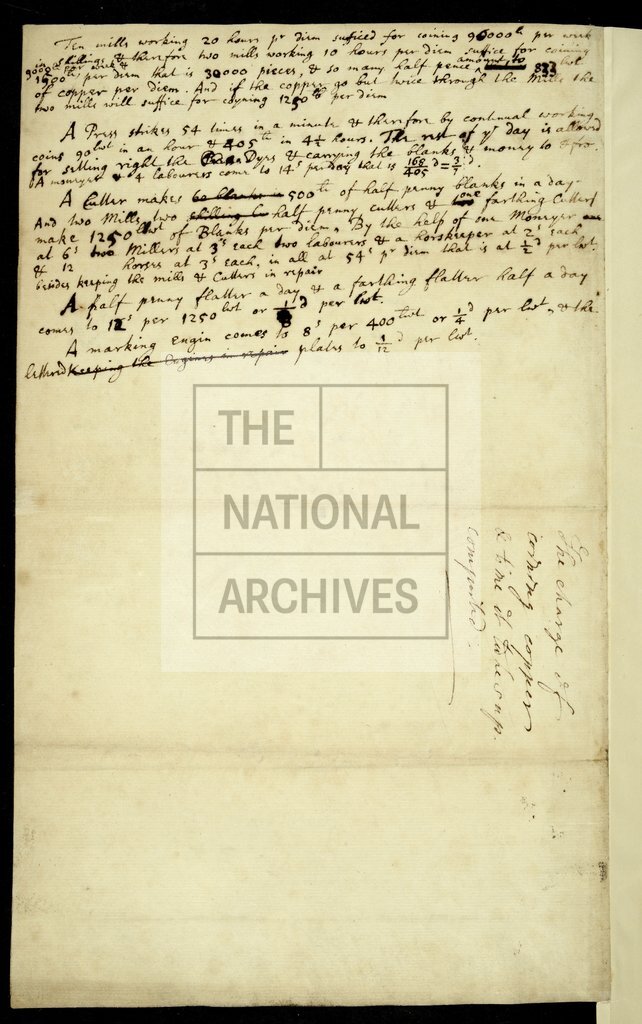 Ten mills working 20 hours pr diem sufficed for coining 96000lt per week
in shillings & therefore two mills working 10 hours per diem suffice for coining
9000lt per week &
1500lt per diem that is 30000 pieces, & so many half pence amount to 833 lwt
of copper per diem. And if the copper go but twice through the Mills the
two mills will suffice for coyning 1250lt per diem
A Press strikes 54 times in a minute & therefore by continual working
coins 90lwt in an hour & 405lt in 4½ hours. The rest of yt day is allowed
for setting right the Dyes & carrying the blanks & money to & fro.
A moneyer & 4 labourers come to 14s per day that is 168/405 d = 3/7 d.
A Cutter makes 500lt of half penny blanks in a day.
And two Mills, two half penny cutters & one farthing Cutter
make 1250lwt of Blanks per diem. By the half of one Moneyer
at 6s two Millers at 3s each two labourers & a horskeeper at 2s each
& 12 horses at 3s each, in all at 54s pr diem that is at ½d per lwt.
besides keeping the mills & Cutters in repair
A half penny flatter a day & a farthing flatter half a day
comes to 12s per 1250lwt or d per lwt.
A marking Engin comes to 8s per 400lwt or ¼d per lwt, & the
letter'd keeping the Engines in repair plates to 1/12 d per lwt.
THE
NATIONAL
ARCHIVES
The charge of
coining copper
& time it takes up
computed.